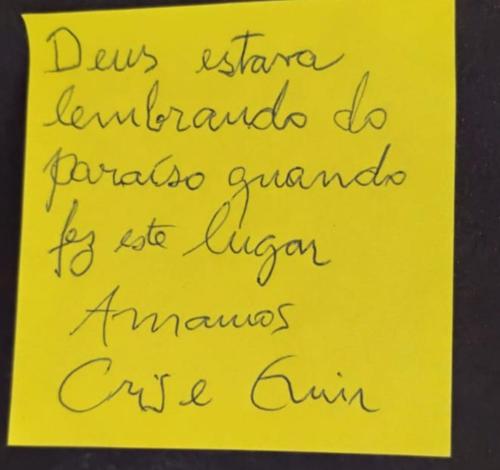 Deus estava
lembrando do
paraíso quando
fez este lugar
Amamos
Cris e